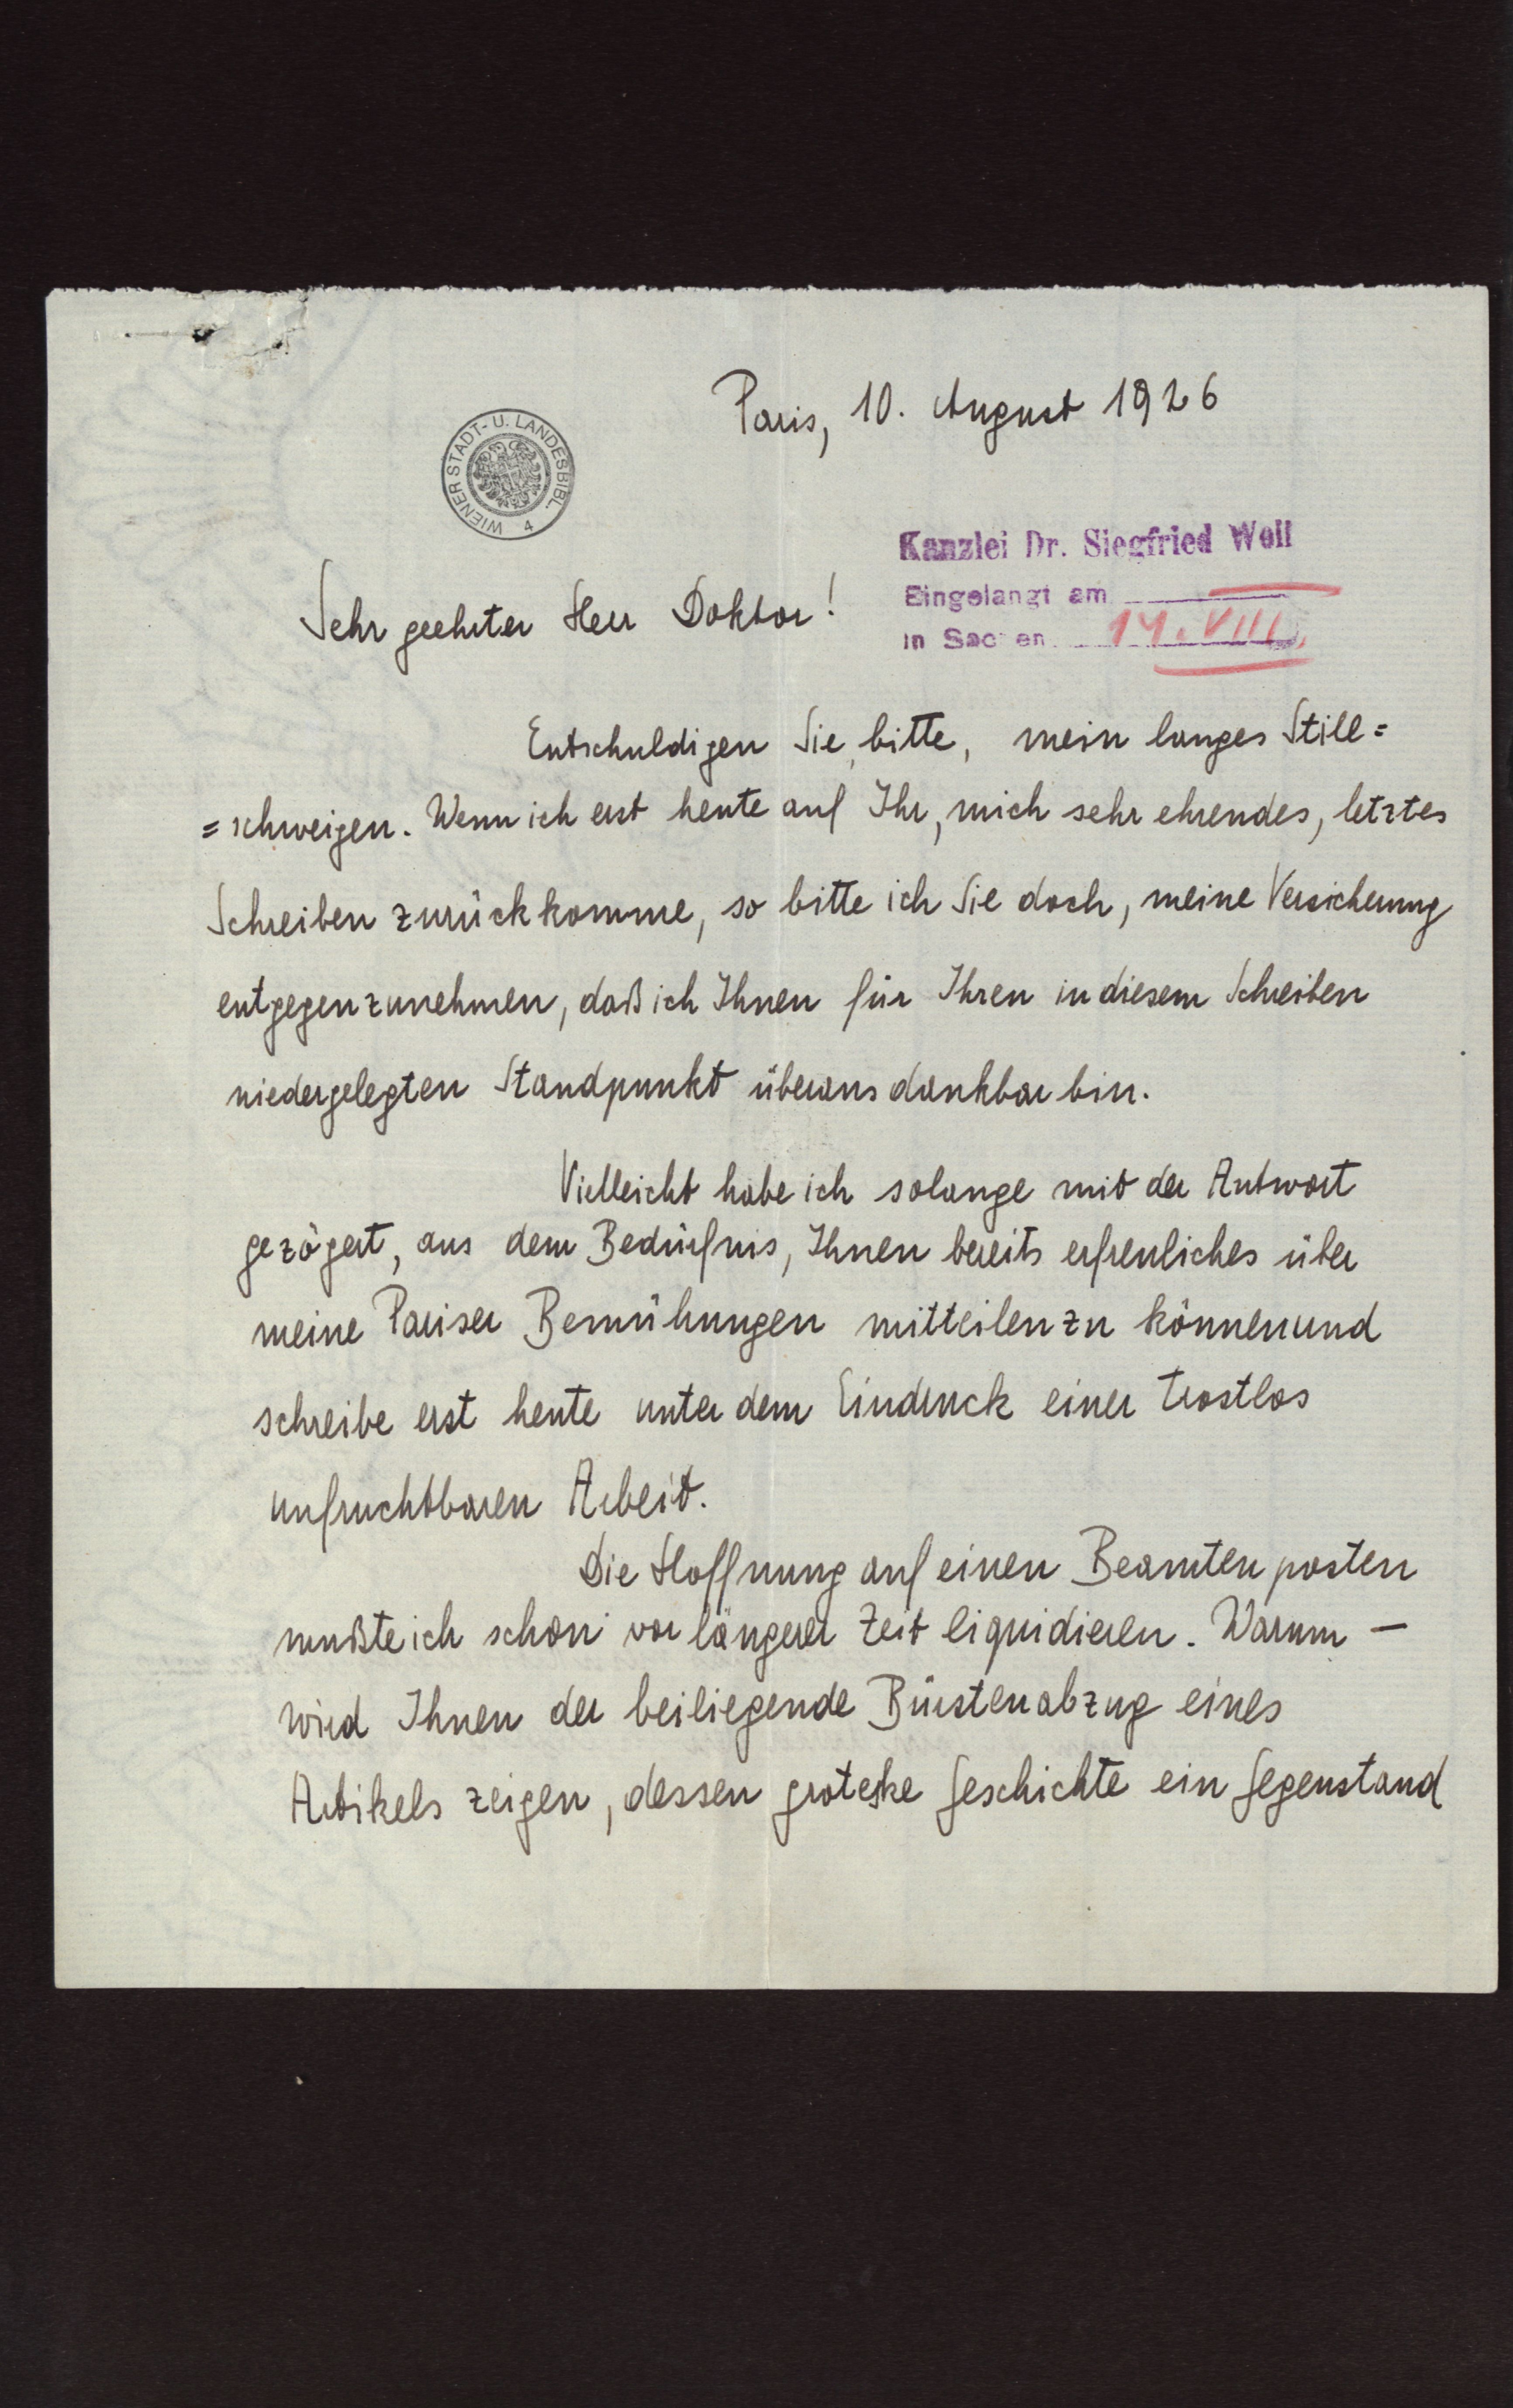 Paris, 10. August 1926
WIENER STADT- U. LANDESBIBL. 4
Kanzlei Dr. Siegfried Woll
Eingelangt am
in Sachen 14. VIII
Sehr geehrter Herr Doktor!
Entschuldigen Sie, bitte, mein langes Still=
=schweigen. Wenn ich erst heute auf Ihr, mich sehr ehrendes, letztes
Schreiben zurückkomme, so bitte ich Sie doch, meine Versicherung
entgegenzunehmen, daß ich Ihnen für Ihren in diesem Schreiben
niedergelegten Standpunkt überaus dankbar bin.
Vielleicht habe ich solange mit der Antwort
gezögert, aus dem Bedürfnis, Ihnen bereits erfreuliches über
meine Pariser Bemühungen mitteilen zu können und
schreibe erst heute unter dem Eindruck einer trostlos
unfruchtbaren Arbeit.
Die Hoffnung auf einen Beamtenposten
mußte ich schon vor längerer Zeit liquidieren. Warum —
wird Ihnen der beiliegende Bürstenabzug eines
Artikels zeigen, dessen groteske Geschichte ein Gegenstand